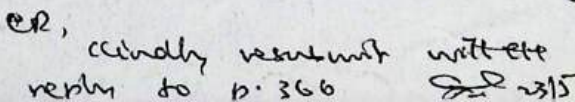 CR,
kindly resubmit with the
reply to p. 366 23/5